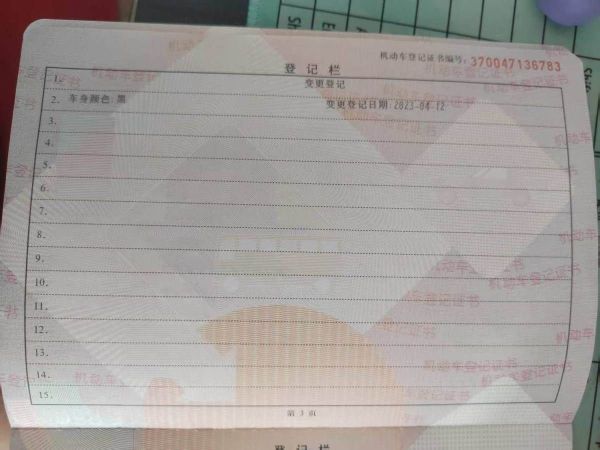 机动车登记证书编号: 370047136783
登记栏
1. 变更登记
2. 车身颜色:黑 变更登记日期:2023-04-12
3.
4.
5.
6.
7.
8.
9.
10.
11.
12.
13.
14.
15.
第 3 页
登记栏